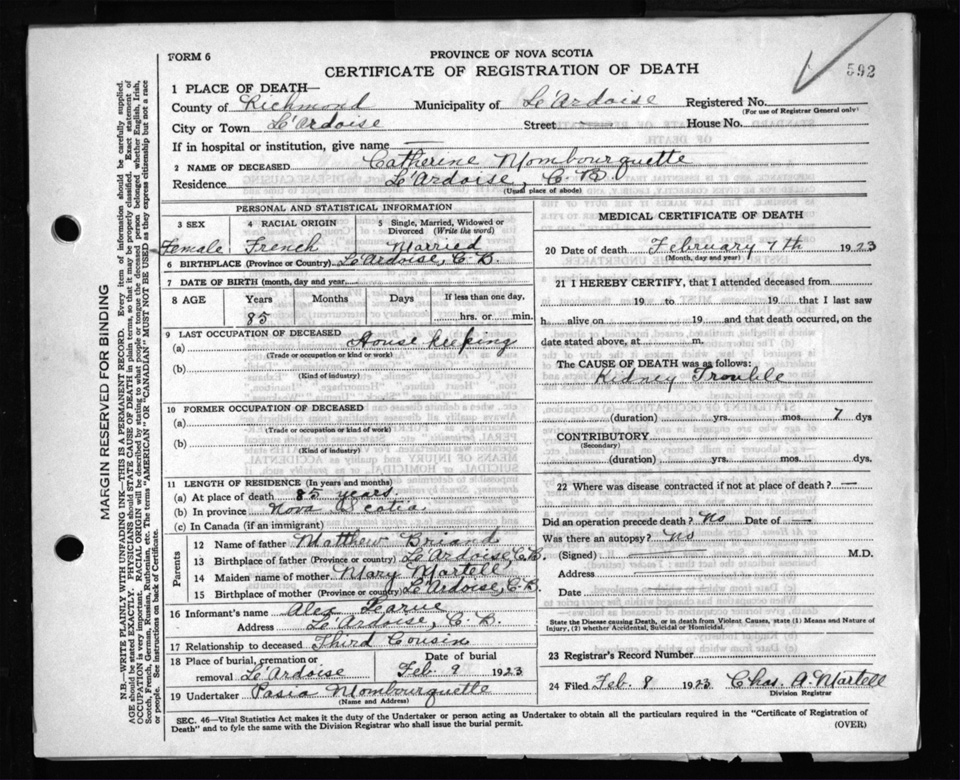 FORM 6
PROVINCE OF NOVA SCOTIA
CERTIFICATE OF REGISTRATION OF DEATH
592
1 PLACE OF DEATH—
County of Richmond Municipality of Le'Ardoise Registered No.
(For use of Registrar General only)
City or Town Le'Ardoise Street — House No.
If in hospital or institution, give name —
2 NAME OF DECEASED Catherine Mombourquette
Residence Le'Ardoise, C. B.
(Usual place of abode)
PERSONAL AND STATISTICAL INFORMATION
3 SEX 4 RACIAL ORIGIN 5 Single, Married, Widowed or Divorced (Write the word)
Female French Married
6 BIRTHPLACE (Province or Country) Le'Ardoise, C. B.
7 DATE OF BIRTH (month, day and year)
8 AGE Years Months Days If less than one day,
85 hrs. or min.
9 LAST OCCUPATION OF DECEASED
(a) House keeping
(Trade or occupation or kind or work)
(b)
(Kind of industry)
10 FORMER OCCUPATION OF DECEASED
(a)
(Trade or occupation or kind of work)
(b)
(Kind of industry)
11 LENGTH OF RESIDENCE (In Years and months)
(a) At place of death 85 years
(b) In province Nova Scotia
(c) In Canada (if an immigrant)
Parents
12 Name of father Matthew Briand
13 Birthplace of father (Province or country) Le'Ardoise, C.B.
14 Maiden name of mother Mary Martell
15 Birthplace of mother (Province or country) Le'Ardoise, C.B.
16 Informant's name Alex Learue
Address Le'Ardoise, C. B.
17 Relationship to deceased Third Cousin
18 Place of burial, cremation or removal Le'Ardoise Date of burial Feb. 9 1923
19 Undertaker Pasia Mombourquette
(Name and Address)
MEDICAL CERTIFICATE OF DEATH
20 Date of death February 7th 1923
(Month, day and year)
21 I HEREBY CERTIFY, that I attended deceased from
19 to 19 that I last saw
h alive on 19 and that death occurred, on the
date stated above, at m.
The CAUSE OF DEATH was as follows:
Kidney Trouble
(duration) yrs. mos. 7 dys
CONTRIBUTORY
(Secondary)
(duration) yrs. mos. dys.
22 Where was disease contracted if not at place of death? —
Did an operation precede death? No Date of —
Was there an autopsy? No
(Signed) — M.D.
Address —
Date —
State the Disease causing Death, or in death from Violent Causes, state (1) Means and Nature of
Injury, (2) whether Accidental, Suicidal or Homicidal.
23 Registrar's Record Number
24 Filed Feb. 8 1923 Chas. A. Martell
Division Registrar
SEC. 46—Vital Statistics Act makes it the duty of the Undertaker or person acting as Undertaker to obtain all the particulars required in the "Certificate of Registration of
Death" and to fyle the same with the Division Registrar who shall issue the burial permit.
(OVER)
MARGIN RESERVED FOR BINDING
N.B.—WRITE PLAINLY WITH UNFADING INK—THIS IS A PERMANENT RECORD. Every item of information should be carefully supplied.
AGE should be stated EXACTLY. PHYSICIANS should STATE CAUSE OF DEATH in plain terms, so that it may be properly classified. Exact statement of
OCCUPATION is very important. RACIAL ORIGIN will be described by stating to what people or tongue the deceased person belonged whether English, Irish,
Scotch, French, German, Russian, Ruthenian, etc. The terms "AMERICAN" OR "CANADIAN" MUST NOT BE USED as they express citizenship but not a race
or people. See instructions on back of Certificate.